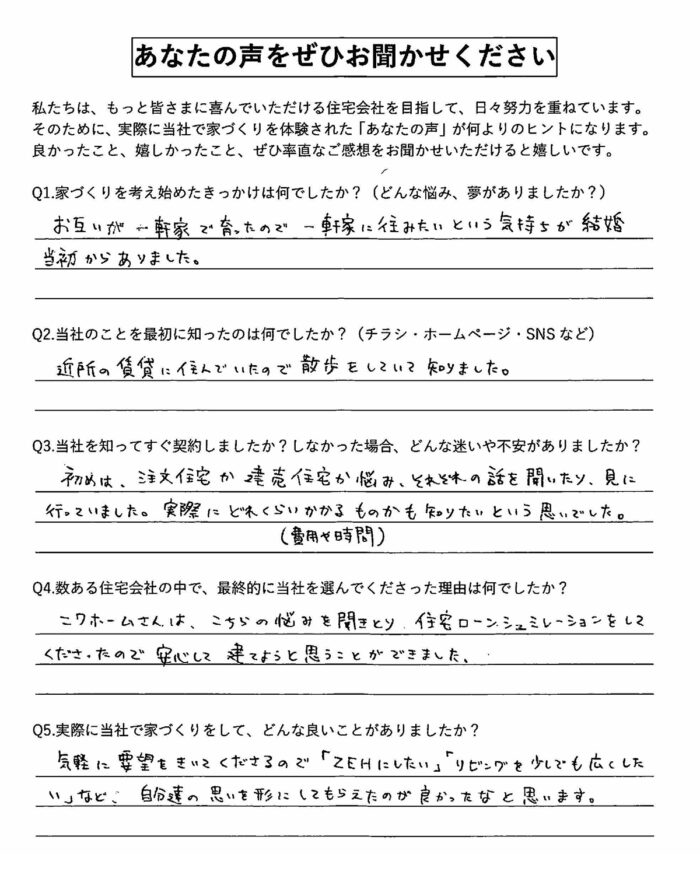 あなたの声をぜひお聞かせください
私たちは、もっと皆さまに喜んでいただける住宅会社を目指して、日々努力を重ねています。
そのために、実際に当社で家づくりを体験された「あなたの声」が何よりのヒントになります。
良かったこと、嬉しかったこと、ぜひ率直なご感想をお聞かせいただけると嬉しいです。
Q1.家づくりを考え始めたきっかけは何でしたか？（どんな悩み、夢がありましたか？）
お互いが一軒家で育ったので一軒家に住みたいという気持ちが結婚
当初からありました。
Q2.当社のことを最初に知ったのは何でしたか？（チラシ・ホームページ・SNS など）
近所の賃貸に住んでいたので散歩をしていて知りました。
Q3.当社を知ってすぐ契約しましたか？しなかった場合、どんな迷いや不安がありましたか？
初めは、注文住宅か建売住宅か悩み、それぞれの話を聞いたり、見に
行っていました。実際にどれくらいかかるものかも知りたいという思いでした。
(費用や時間)
Q4.数ある住宅会社の中で、最終的に当社を選んでくださった理由は何でしたか？
ニワホームさんは、こちらの悩みを聞きとり、住宅ローンシュミレーションをして
くださったので安心して建てようと思うことができました、
Q5.実際に当社で家づくりをして、どんな良いことがありましたか？
気軽に要望をきいてくださるので「ZEHにしたい」「リビングを少しでも広くした
い」など、自分達の思いを形にしてもらえたのが良かったなと思います。